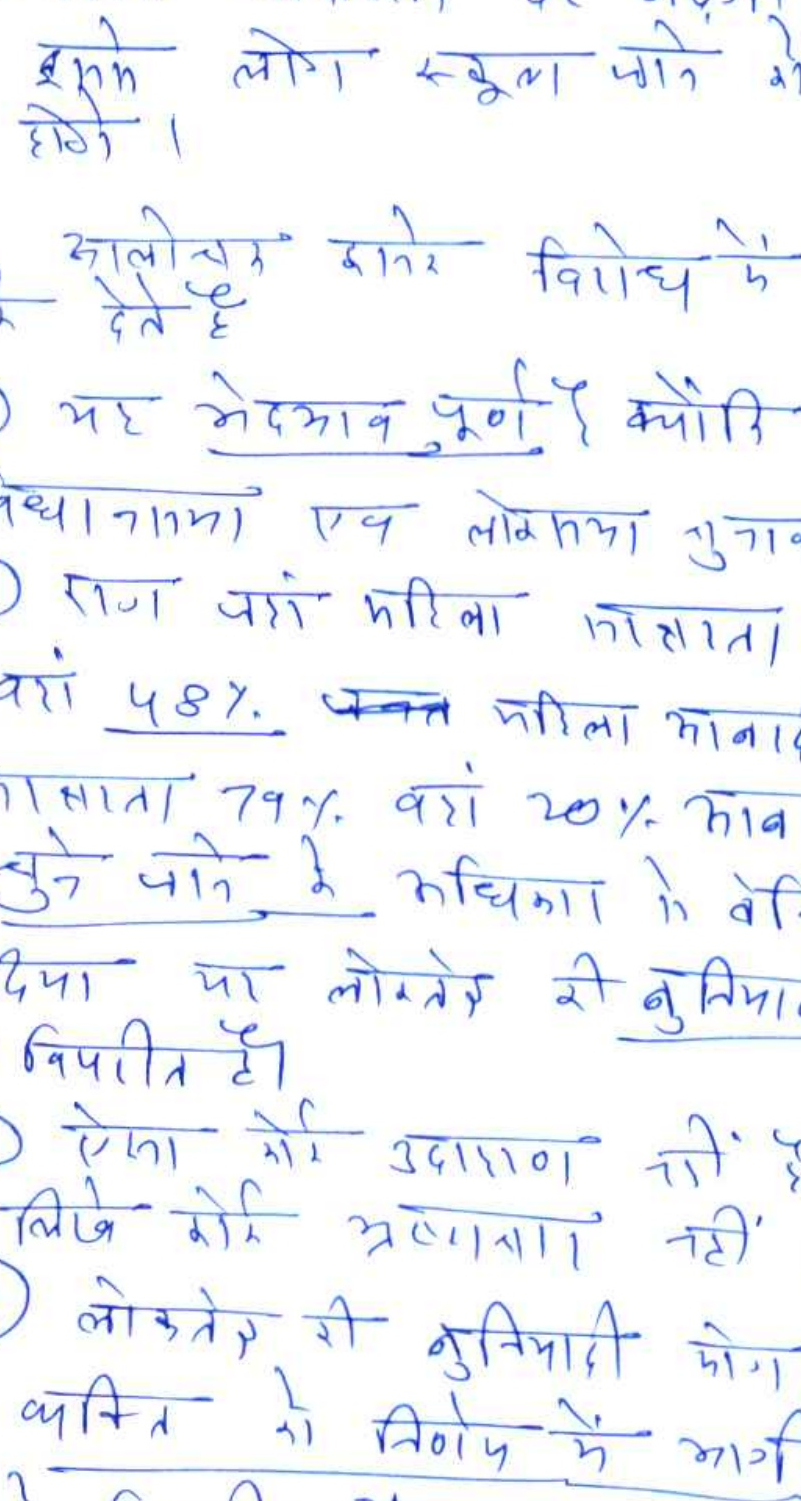 इससे लोग स्कूल जाने को
होंगे।
आलोचक इसके विरोध में
देते है
यह भेदभाव पूर्ण है क्योंकि
विधानसभा एवं लोकसभा चुनाव
राज्य जहां महिला साक्षरता
वहां 48% महिला आबादी
साक्षरता 79% वहां 20% आबा
चुने जाने के अधिकार से वंचि
दिया या लोकतंत्र की बुनियाद
विपरीत है।
ऐसा कोई उदाहरण नहीं है
लिखे कोई भ्रष्टाचार नहीं
लोकतंत्र की बुनियादी मांग
व्यक्ति को निर्णय में भागी